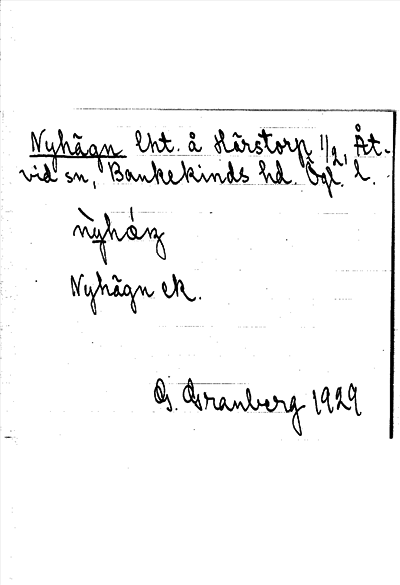 Nyhägn lht. å Härstorp 1/2, Åt-
vid sn, Bankekinds hd. Ögl. l.
Nyhägn ek.
G. Granberg 1929